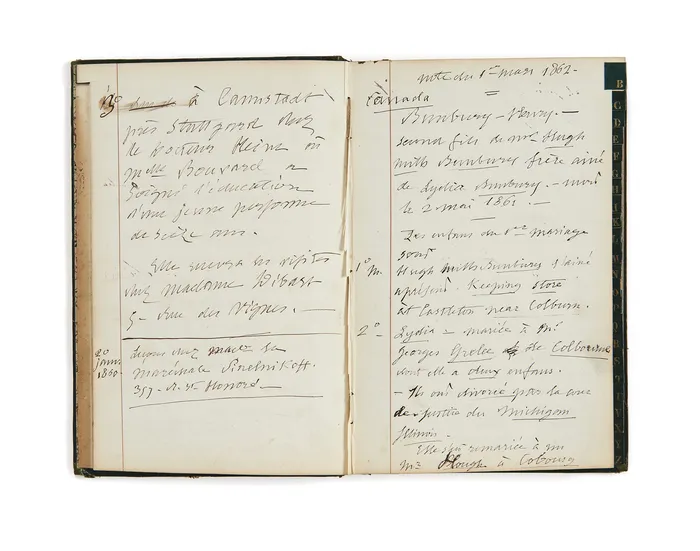 3º à Cannstadt
près Stuttgard chez
le Docteur Heine où
Melle Bouvard a
soigné l'éducation
d'une jeune personne
de seize ans.
Elle recevra les visites
chez Madame
5 - rue des Vignes. —
20
1860
depuis chez made la
maréchale
357 - r. St Honoré —
note du 1er mars 1862 -
Canada
Bunbury - Henry. -
second fils de Mr Hugh
Mill Bunbury frère ainé
de Lydia Bunbury. - mort
le 2 mai 1861. —
Les enfans du 1er mariage
sont
1º M. Hugh Mill Bunbury l'ainé
à présent - Keeping store
at Castleton near Colburn.
2º - Lydia - mariée à Mr
Georges de Colbourne
dont elle a deux enfans.
- Ils ont divorcé par la cour
de justice du Michigan
Illinois -
Elle s'est remariée à un
Mr Hough à Cobourg
B
C
D
E
F
G
H